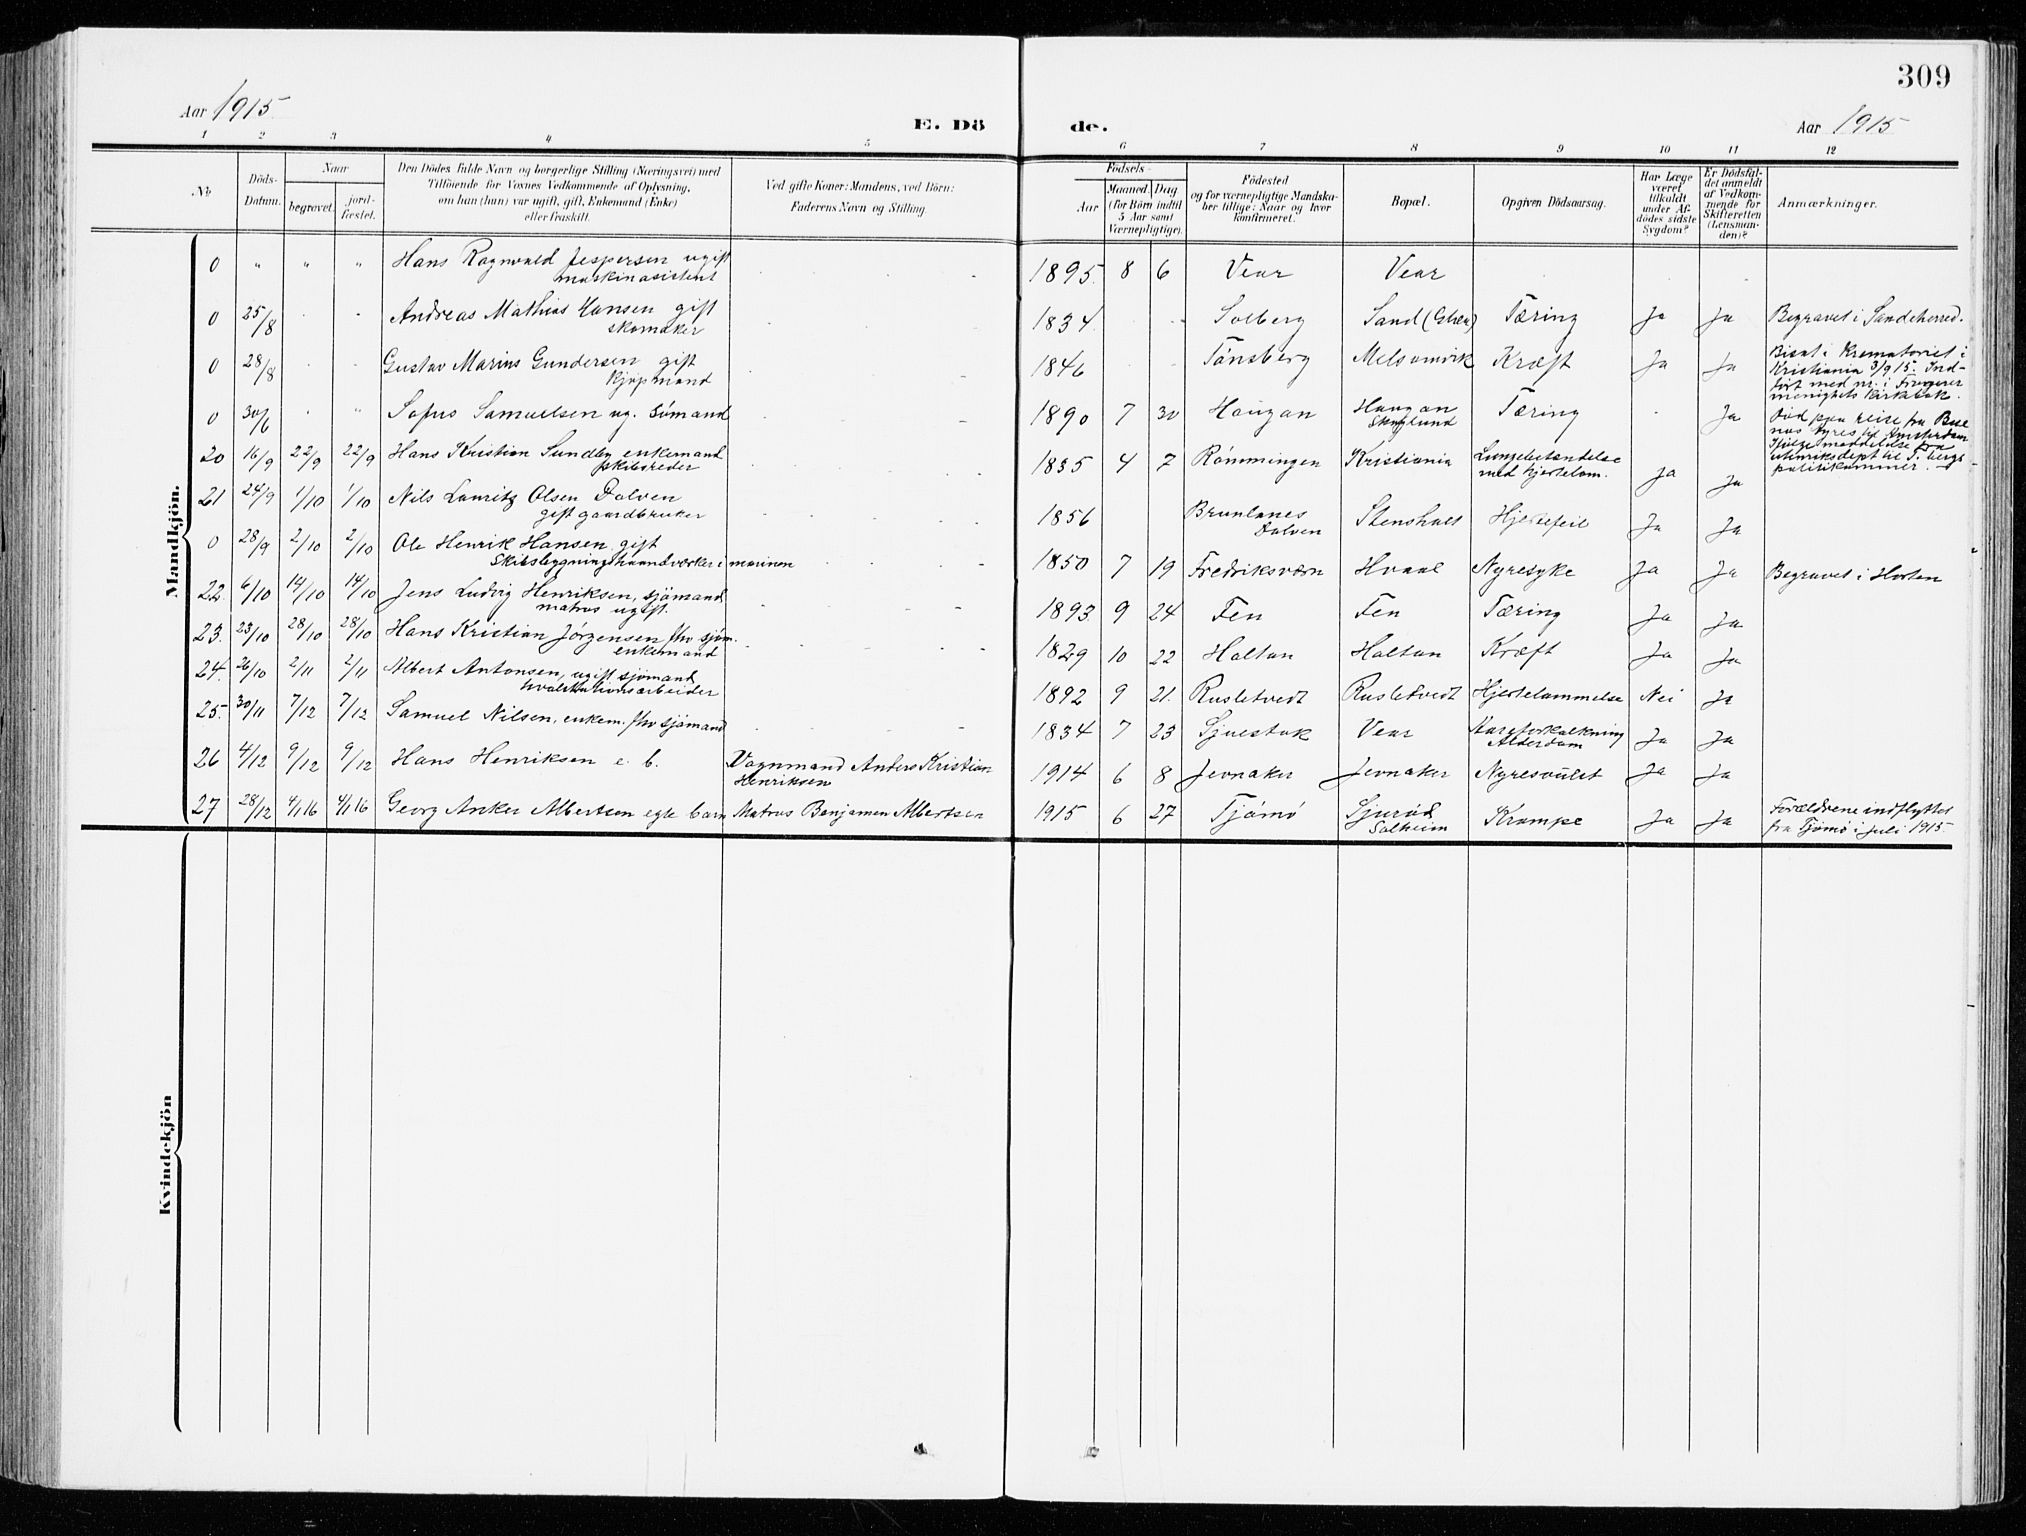 309
Aar 1915
E. Dö de.
Aar 1915
1 2 3 4 5 6 7 8 9 10 11 12
No
Döds-Datum.
Naar
begravet.
jord-fæstet.
Den Dödes fulde Navn og borgerlige Stilling (Næringsvei) med
Tilföiende for Voxnes Vedkommende af Oplysning,
om han (hun) var ugift, gift, Enkemand (Enke)
eller fraskilt.
Ved gifte Koner: Mandens, ved Börn:
Faderens Navn og Stilling.
Födsels-
Aar
Maaned. Dag
(for Börn indtil
5 Aar samt
Værnepligtige).
Födested
og for værnepligtige Mandska-
ber tillige: Naar og hvor
konfirmeret.
Bopæl.
Opgiven Dödsaarsag.
Har Læge
været
tilkaldt
under Af-
dödes sidste
Sygdom?
Er Dödsfal-
det anmeldt
af Vedkom-
mende for
Skifteretten
(Lensman-
den)?
Anmærkninger.
Mandkjön.
0 " " " Hans Ragnvald Jespersen ugift 1895 8 6 Vear Vear
maskinasistent
0 25/8 Andreas Mathias Hansen gift 1834 Solberg Sand Tæring Ja Ja Begravet i Sandeherred.
skomaker
0 28/8 Gustav Marius Gundersen gift 1846 Tönsberg Melsomvik Kræft Ja Ja Bisat i Krematoriet i
kjöpmand Kristiania 3/9 15. Ind-
fört med nr. i Frogner
menighets kirkebok.
0 30/6 Sofus Samuelsen ug. Sömand 1890 7 30 Haugan Haugan Tæring Ja Död paa reise fra Bue-
Skoglund nos Ayres til Amsterdam
20 16/9 22/9 22/9 Hans Kristian Sundby enkemand 1835 4 7 Römmingen Kristiania Lungebetændelse Ja Ja Ifölge meddelelse fra
skibsreder med hjertelam. utenriksdept til T.bergs
politikammer.
21 24/9 1/10 1/10 Nils Lauritz Olsen Dolven 1856 Brunlanes Stenshalt Hjertefeil Ja Ja
gift gaardbruker Dolven
0 28/9 2/10 2/10 Ole Henrik Hansen gift 1850 7 19 Fredriksværn Hvaal Nyresyke Ja Ja Begravet i Horten
Skibsbygningshaandverker i marinen
22 6/10 14/10 14/10 Jens Ludvig Henriksen, sjömand 1893 9 24 Fen Fen Tæring Ja Ja
matros ugift.
23. 23/10 28/10 28/10 Hans Kristian Jörgensen fhv sjöm. 1829 10 22 Holtan Holtan Kræft Ja Ja
enkemand
24. 26/10 2/11 2/11 Albert Antonsen, ugift sjömand 1892 9 21. Rusletvedt Rusletvedt Hjertelammelse Nei Ja
hvalstationsarbeider
25. 30/11 7/12 7/12 Samuel Nilsen, enkem. fhv sjömand 1834 7 23 Sjuestok Vear Aareforkalkning Ja Ja
Alderdom
26 4/12 9/12 9/12 Hans Henriksen e. b. Vognmand Anders Kristian 1914 6 8 Jevnaker Jevnaker Nyresvulst Ja Ja
Henriksen
27 28/12 4/1 16 4/1 16 Georg Anker Albertsen egte barn Matros Benjamen Albertsen 1915 6 27 Tjömö Sjuröd Krampe Ja Ja Forældrene indflyttet
Solheim fra Tjömö i juli 1915
Kvindekjön